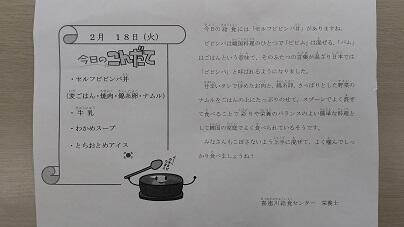 2月 18日(火)
今日のこんだて
・セルフビビンバ丼
(麦ごはん・焼肉・錦糸卵・ナムル)
・牛乳
・わかめスープ
・とちおとめアイス
今日の給食には「セルフビビンバ丼」がありますね。
ビビンバは韓国料理のひとつで「ビビム」は混ぜる、「バム」
はごはんという意味で、そのふたつの言葉が混ざり日本では
「ビビンバ」と呼ばれるようになりました。
甘辛いタレで炒めたお肉と、錦糸卵、さっぱりとした野菜の
ナムルをごはんの上にたっぷりのせて、スプーンでよく混ぜ
て食べることで彩りや栄養のバランスのよい簡単な料理と
して韓国の家庭でよく食べられているそうです。
みなさんもこぼさないよう上手に混ぜて、よく噛んでしっ
かり食べましょうね！
給食センター 栄養士